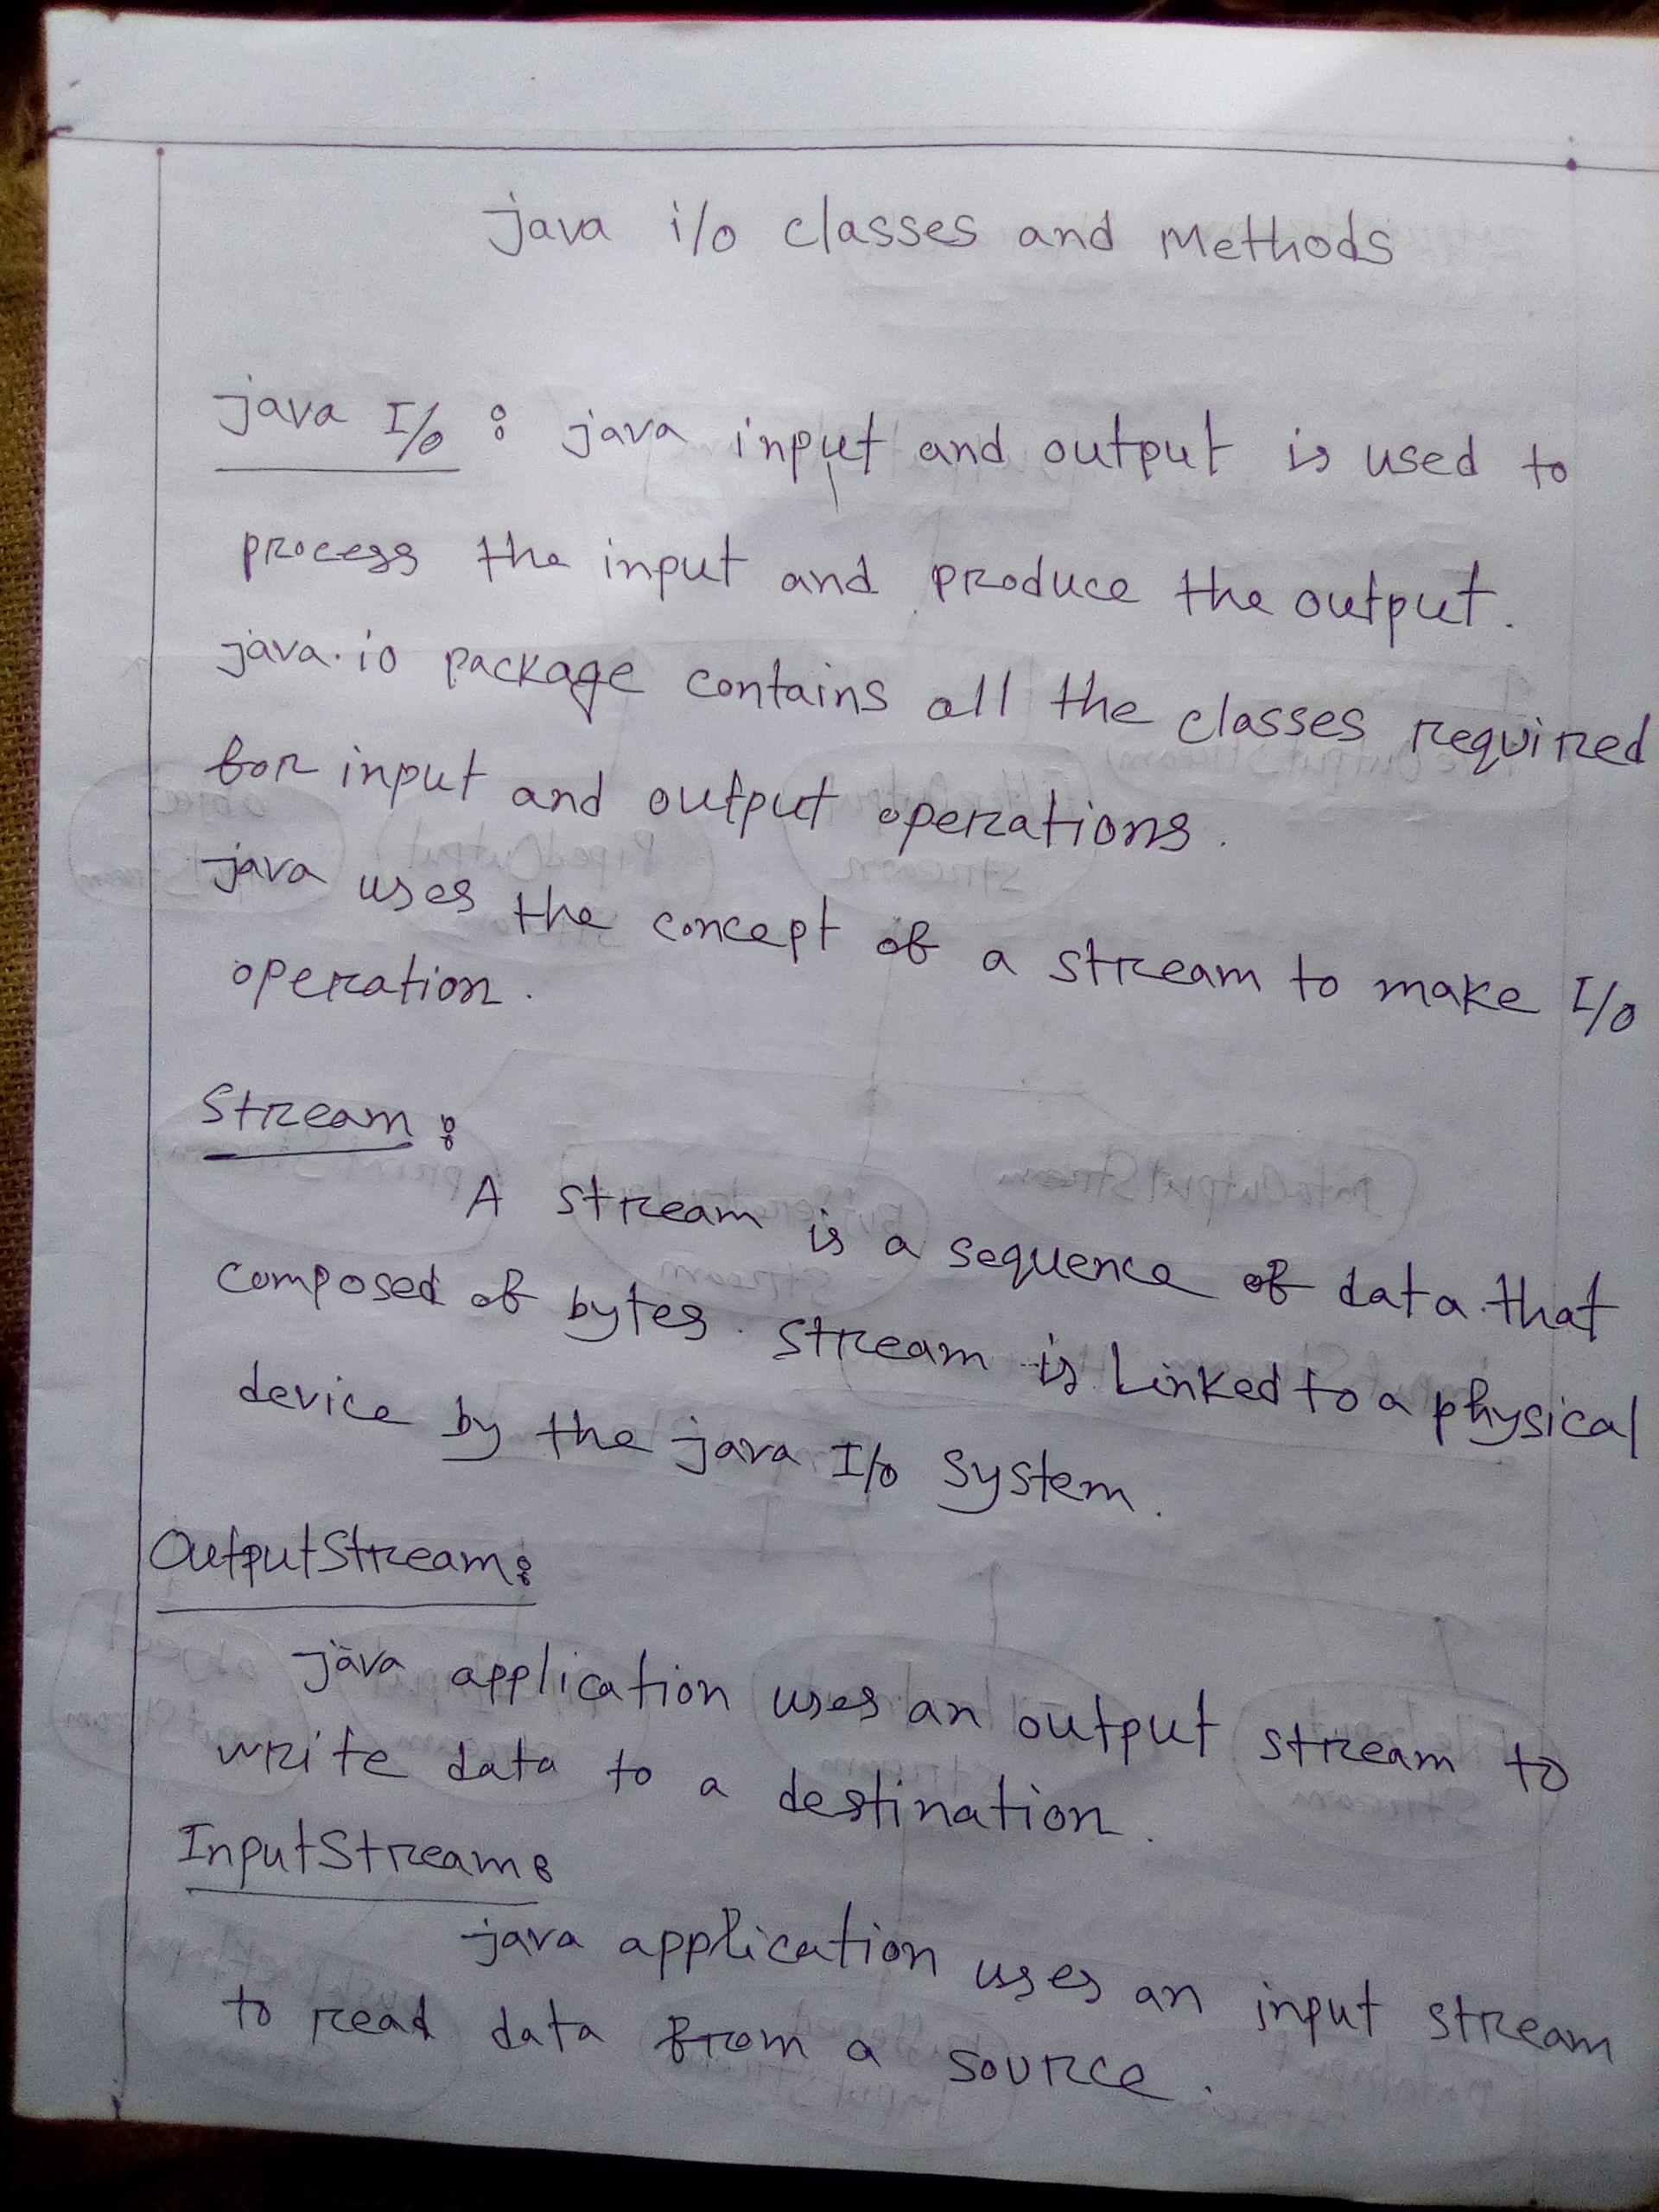 java i/o classes and Methods
java I/O : java input and output is used to
process the input and produce the output.
java.io package contains all the classes required
for input and output operations.
java uses the concept of a stream to make I/O
operation.
Stream :
A stream is a sequence of data that
composed of bytes. stream is Linked to a physical
device by the java I/O system.
OutputStream:
java application uses an output stream to
write data to a destination.
InputStream:
java application uses an input stream
to read data from a source.